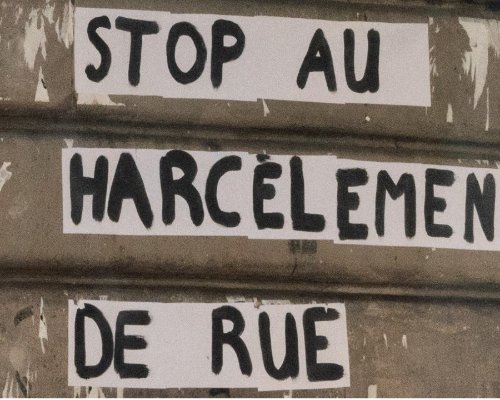 STOP AU
HARCÈLEMEN
DE RUE